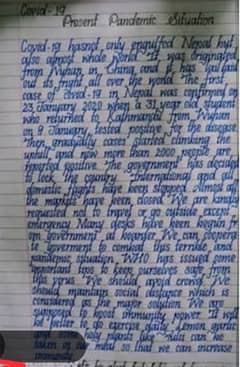 Covid-19
Present Pandemic Situation
Covid-19 hasnot only engulfed Nepal but
also almost whole world. It was originated
from Wuhan, in China and it has
out its fright all over the world. The first
case of covid-19 in Nepal was confirmed on
23 January 2020 when a 31 year old student
who returned to Kathmandu from Wuhan
on 9 January, tested positive for the disease.
Then gradually cases started climbing the
uphill and now more than 2000 people are
reported positive. The government has decided
to lock the country. International and all
domestic flights have been stopped. Almost all
the markets have been closed. We are kindly
requested not to travel or go outside except
emergency. Many desks have been
government at We can cooperate
to goverment to combat this terrible and
pandemic situation. WHO has issued some
important tips to keep ourselves safe from
this virus. We should avoid crowd. We
should maintain social distance which is
considered as the major solution. We are
supposed to boost immunity power. It will
be better to do exercise daily. Lemon, garlic
and some plants like can be
taken as so that we can increase
immunity